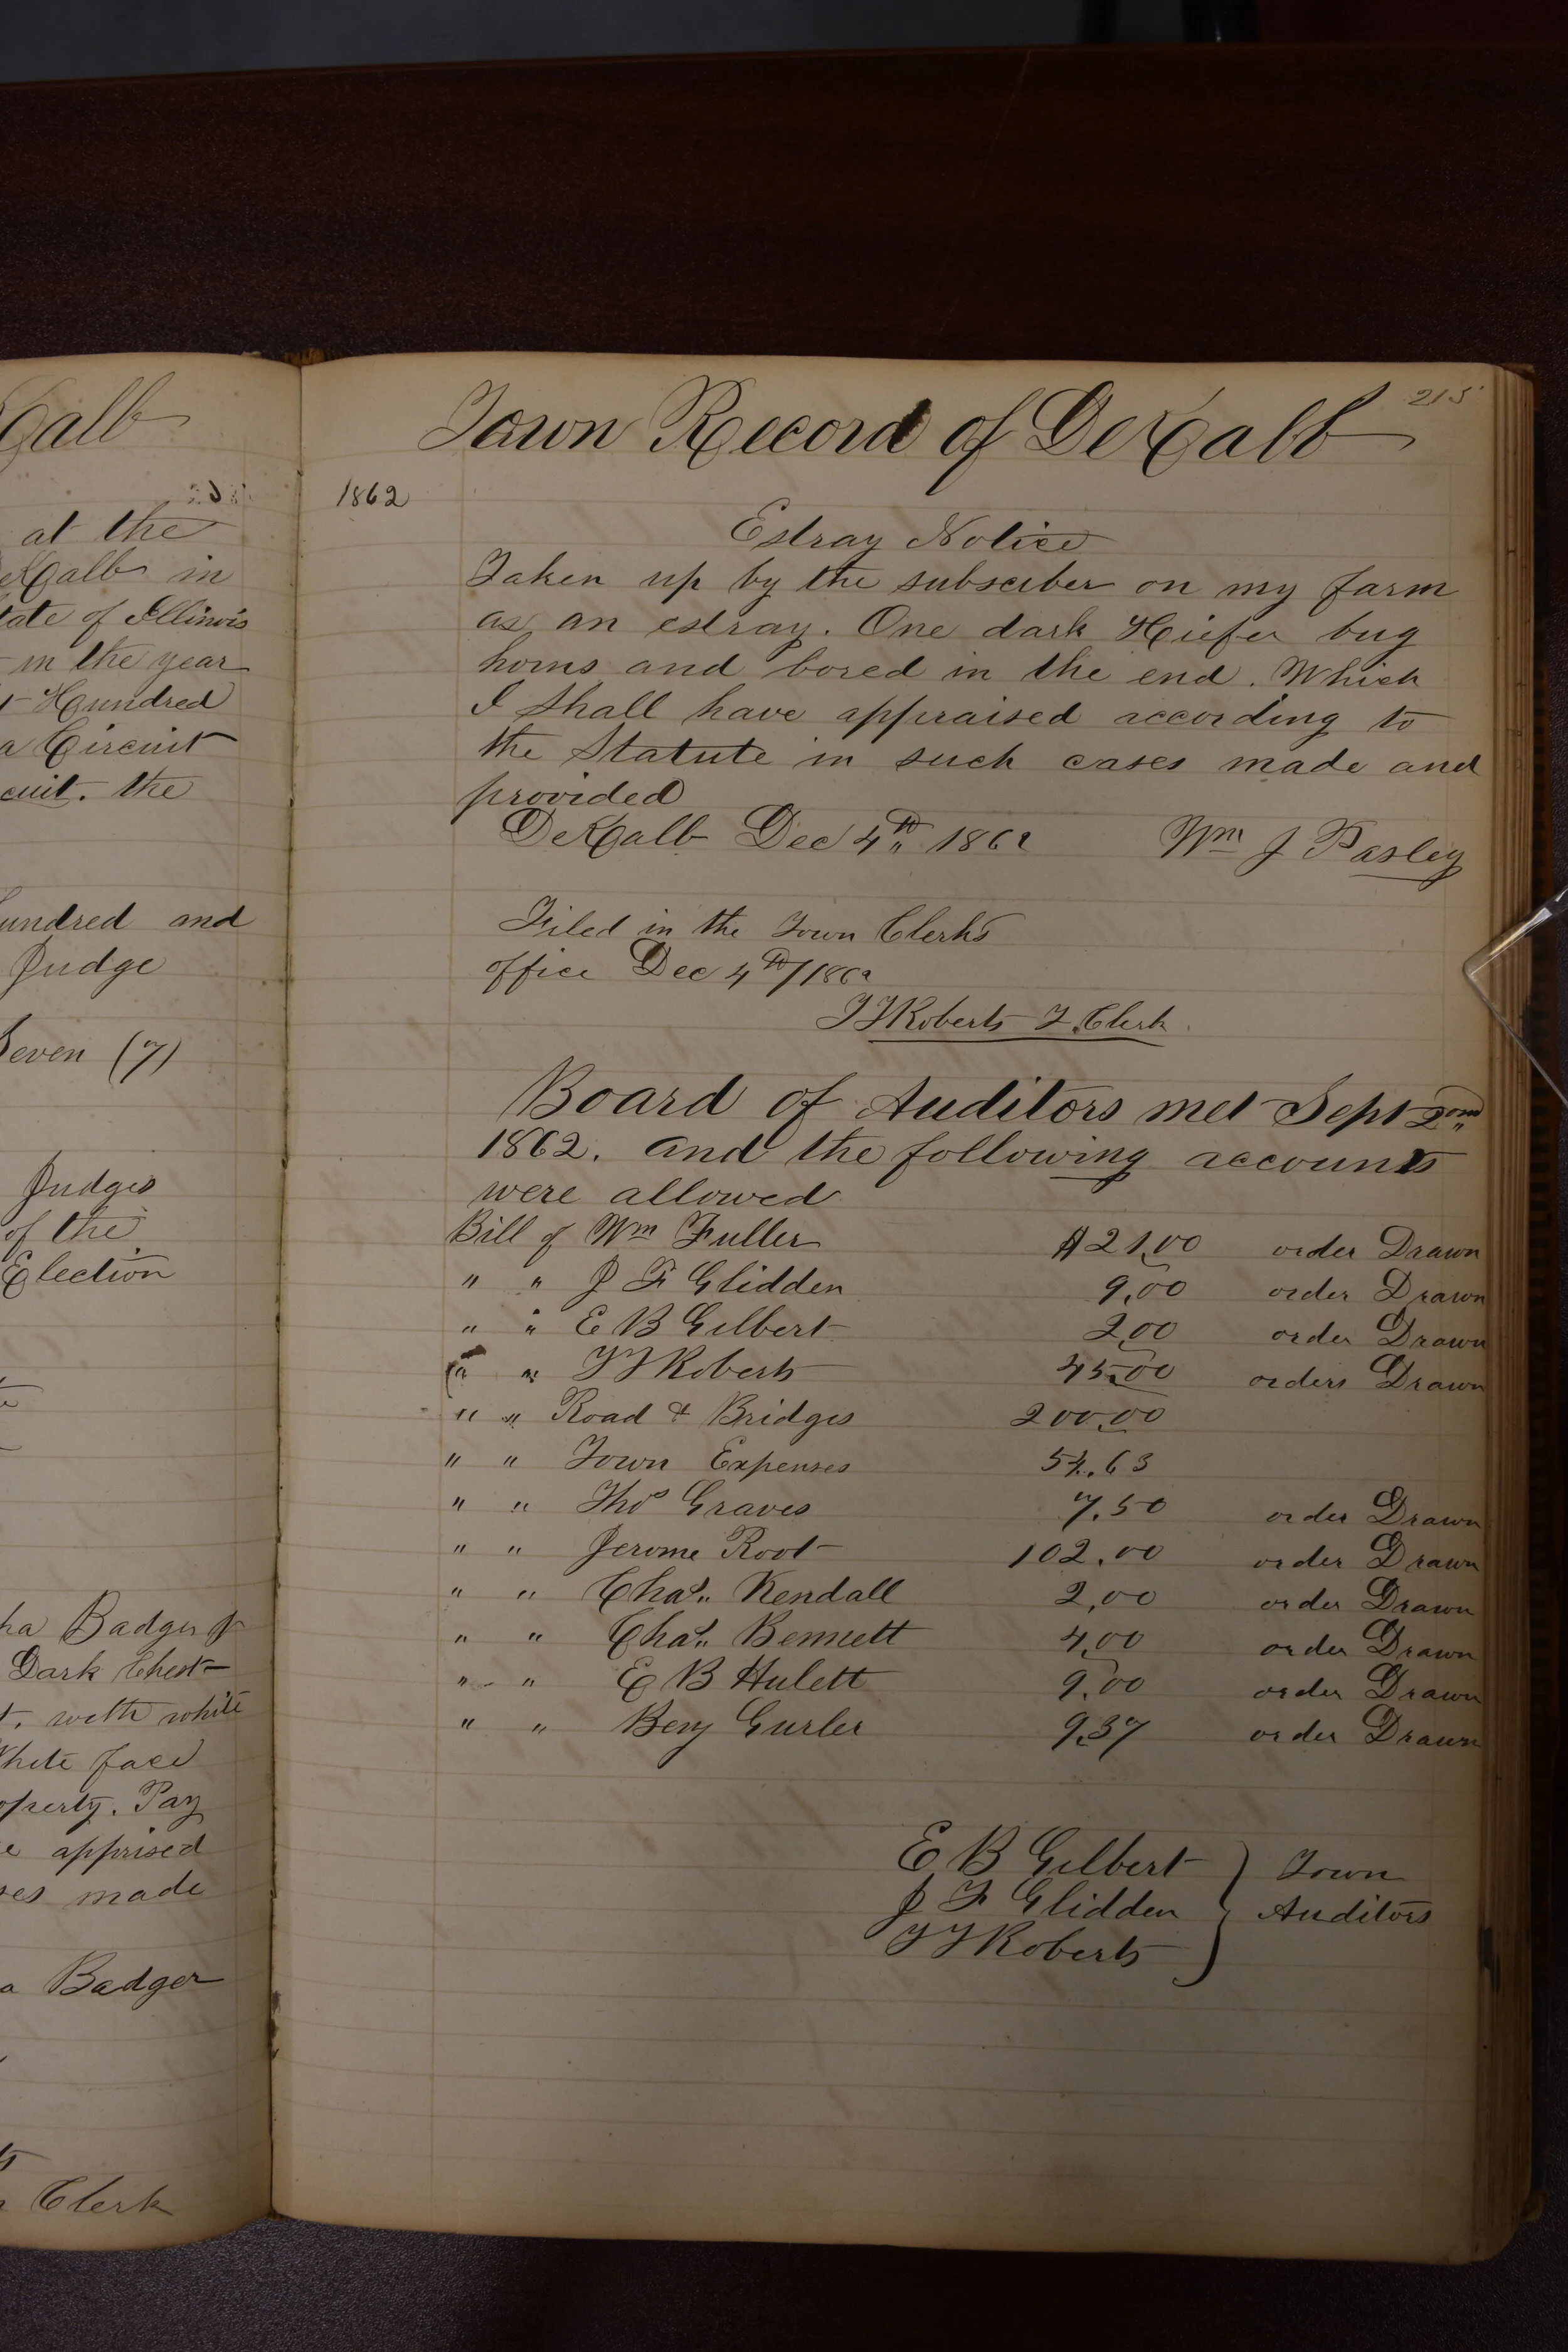 Calb
at the
eKalb in
tate of Illinois
in the year
t Hundred
a Circuit
cuit. the
undred and
Judge
Seven (7)
Judges
of the
Election
ha Badger Jr
Dark Chest
t. with white
White face
operty. Pay
e apprised
ses made
a Badger
Clerk
215
Town Record of DeKalb
1862
Estray Notice
Taken up by the subsciber on my farm
as an estray. One dark Hiefer bug
horns and bored in the end. Which
I Shall have appraised according to
the Statute in such cases made and
provided
DeKalb Dec 4th 1862 Wm J Pasley
Filed in the Town Clerks
office Dec 4th/1862
T F Roberts T. Clerk
Board of Auditors met Sept 2ond
1862. and the following accounts
were allowed
Bill of Wm Fuller $21,00 order Drawn
" " J F Glidden 9,00 order Drawn
" " E B Gilbert 2,00 order Drawn
" " T F Roberts 45,00 orders Drawn
" " Road & Bridges 200,00
" " Town Expenses 54.63
" " Thos Graves 7.50 order Drawn
" " Jerome Root 102.00 order Drawn
" " Chas. Kendall 2,00 order Drawn
" " Chas. Bennett 4,00 order Drawn
" " E B Hulett 9,00 order Drawn
" " Benj Gurler 9.37 order Drawn
E B Gilbert } Town
J F Glidden } Auditors
T F Roberts }